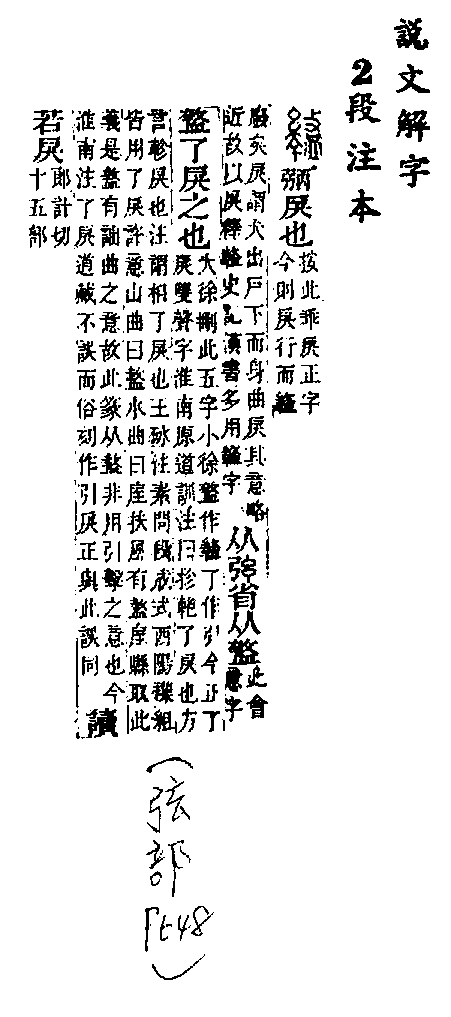 説文解字
2段注本
弼戾也
按此乖戾正字
今則戾行而盭
廢矣戾謂犬出戶下而身曲戾其意略
近故以戾釋盭史記漢書多用盭字
从弦省从盭
此會
意字
盭了戾之也
大徐刪此五字小徐盭作盭了作引今正了
戾雙聲字淮南原道訓注曰抮軳了戾也方
言軫戾也注謂相了戾也王砅注素問段成式酉陽雜俎
皆用了戾許意山曲曰盩水曲曰厔扶風有盩厔縣取此
義是盭有詘曲之意故此篆从盭非用引擊之意也今
淮南注了戾道藏不誤而俗刻作引戾正與此誤同
讀
若戾
郎計切
十五部
(弦部
P648)